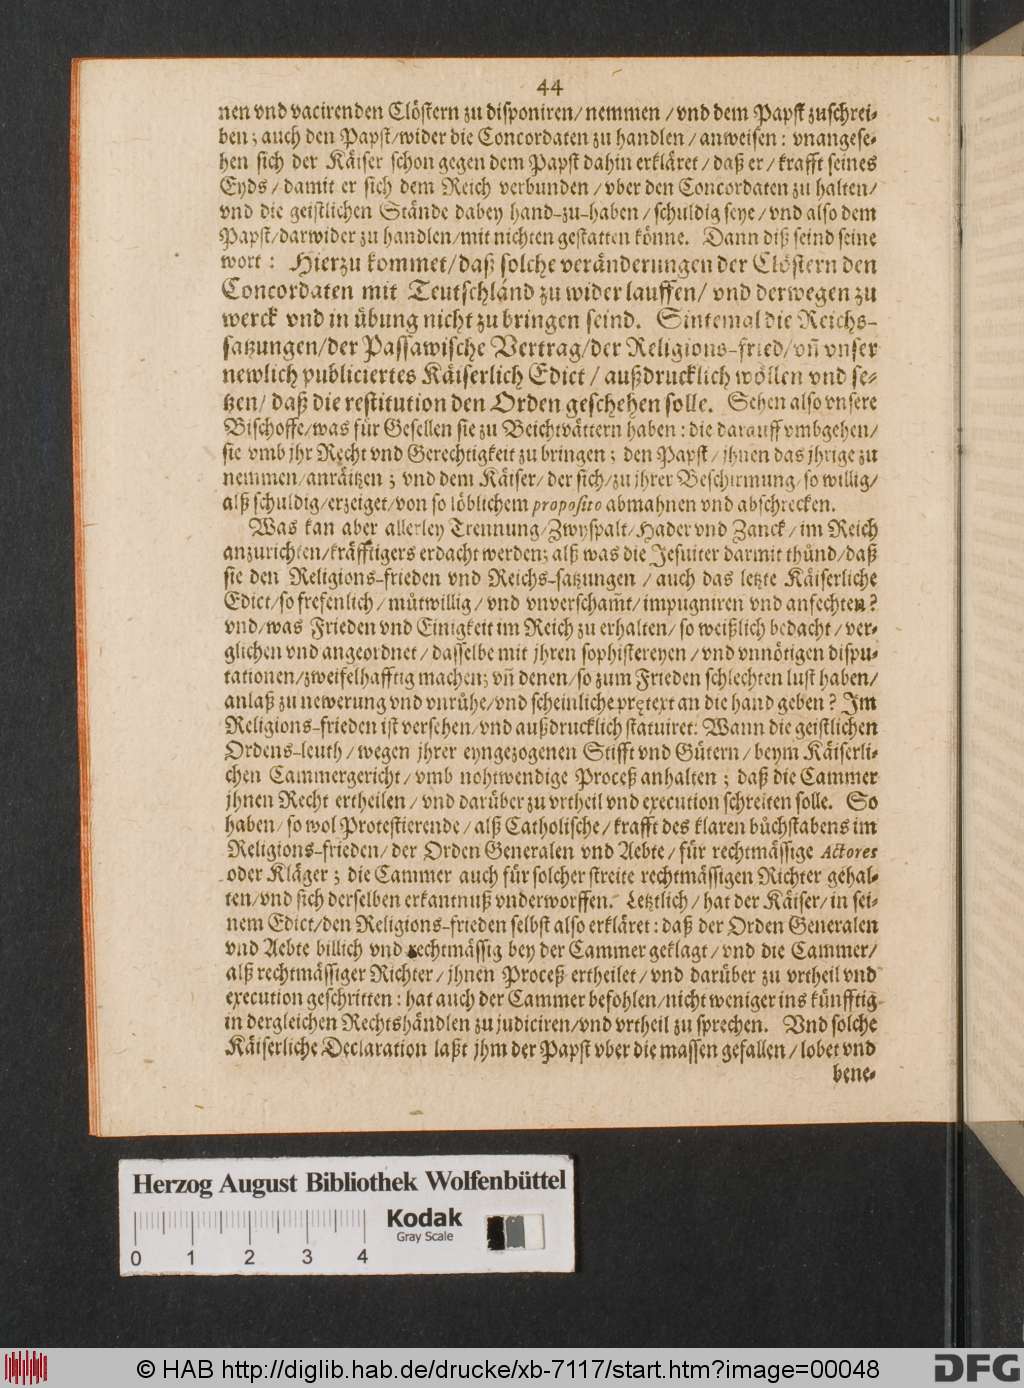 44
nen vnd vacirenden Clöstern zu disponiren/ nemmen / vnd dem Papst zuschrei-
ben; auch den Papst/ wider die Concordaten zu handlen / anweisen: vnangese-
hen sich der Käiser schon gegen dem Papst dahin erkläret / daß er / krafft seines
Eyds / damit er sich dem Reich verbunden / vber den Concordaten zu halten/
vnd die geistlichen Stände dabey hand-zu-haben / schuldig seye / vnd also dem
Papst/ darwider zu handlen/ mit nichten gestatten könne. Dann diß seind seine
wort: Hierzu kommet/ daß solche veränderungen der Clöstern den
Concordaten mit Teutschland zu wider lauffen/ vnd derwegen zu
werck vnd in übung nicht zu bringen seind. Sintemal die Reichs-
satzungen/ der Passawische Vertrag/ der Religions-fried/ vñ vnser
newlich publiciertes Käiserlich Edict / außdrucklich wöllen vnd se-
tzen/ daß die restitution den Orden geschehen solle. Sehen also vnsere
Bischoffe/ was für Gesellen sie zu Beichtvättern haben: die darauff vmbgehen/
sie vmb jhr Recht vnd Gerechtigkeit zu bringen; den Papst / jhnen das jhrige zu
nemmen/ anräitzen ; vnd dem Käiser/ der sich/ zu jhrer Beschirmung/ so willig/
alß schuldig/ erzeiget/ von so löblichem proposito abmahnen vnd abschrecken.
Was kan aber allerley Trennung/ Zwyspalt/ Hader vnd Zanck/ im Reich
anzurichten/ kräfftigers erdacht werden; alß was die Jesuiter darmit thünd/ daß
sie den Religions-frieden vnd Reichs-satzungen / auch das letzte Käiserliche
Edict/ so frefenlich/ mütwillig/ vnd vnverschamt/ impugniren vnd anfechten?
vnd/ was Frieden vnd Einigkeit im Reich zu erhalten/ so weißlich bedacht/ ver-
glichen vnd angeordnet/ dasselbe mit jhren sophistereyen / vnd vnnötigen dispu-
tationen/ zweifelhafftig machen; vñ denen/ so zum Frieden schlechten lust haben/
anlaß zu newerung vnd vnrühe/ vnd scheinliche prętext an die hand geben? Im
Religions-frieden ist versehen/ vnd außdrucklich statuiret: Wann die geistlichen
Ordens-leuth / wegen jhrer eyngezogenen Stifft vnd Gütern / beym Käiserli-
chen Cammergericht/ vmb nohtwendige Proceß anhalten ; daß die Cammer
jhnen Recht ertheilen / vnd darüber zu vrtheil vnd execution schreiten solle. So
haben/ so wol Protestierende/ alß Catholische/ krafft des klaren büchstabens im
Religions-frieden/ der Orden Generalen vnd Aebte/ für rechtmässige Actores
oder Kläger ; die Cammer auch für solcher streite rechtmässigen Richter gehal-
ten/ vnd sich derselben erkantnuß vnderworffen. Letztlich/ hat der Käiser/ in sei-
nem Edict/ den Religions-frieden selbst also erkläret: daß der Orden Generalen
vnd Aebte billich vnd rechtmässig bey der Cammer geklagt/ vnd die Cammer/
alß rechtmässiger Richter/ jhnen Proceß ertheilet/ vnd darüber zu vrtheil vnd
execution geschritten: hat auch der Cammer befohlen/ nicht weniger ins künfftig
in dergleichen Rechtshändlen zu judiciren/ vnd vrtheil zu sprechen. Vnd solche
Käiserliche Declaration laßt jhm der Papst vber die massen gefallen/ lobet vnd
bene-
Herzog August Bibliothek Wolfenbüttel
Kodak
Gray Scale
0 1 2 3 4
© HAB http://diglib.hab.de/drucke/xb-7117/start.htm?image=00048
DFG